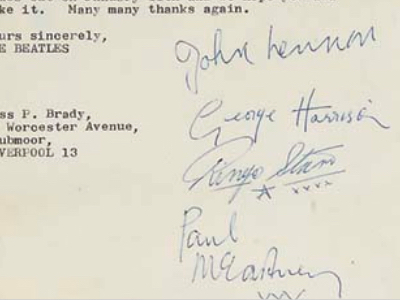 ke it. Many many thanks again.
urs sincerely,
E BEATLES
John Lennon
George Harrison
ss P. Brady,
Worcester Avenue,
ubmoor,
VERPOOL 13
Ringo Starr
xxxx
Paul
McCartney
xxx